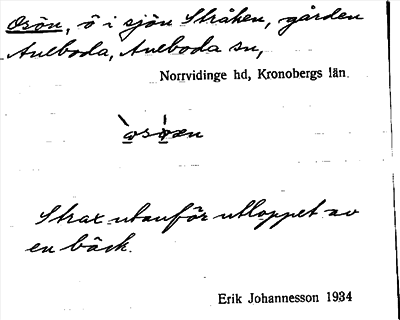 Osön, ö i sjön Stråken, gården
Aneboda, Aneboda sn,
Norrvidinge hd, Kronobergs län.
Strax utanför utloppet av
en bäck.
Erik Johannesson 1934